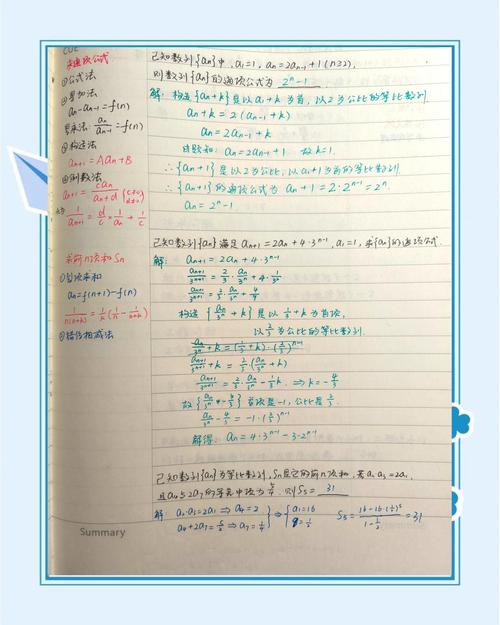 CUE
求通项公式
①公式法
②累加法
an-an-1=f(n)
累乘法: an/an-1=f(n)
③构造法
an+1=Aan+B
④倒数法
an+1=can/an+d (c≠0 d≠0)
1/an+1=d/c×1/an+1/c
求前n项和Sn
①裂项求和
an=f(n+1)-f(n)
1/n(n+k)=1/k(1/n-1/n+k)
②错位相减法
已知数列{an}中,a1=1,an=2an-1+1(n≥2),
则数列{an}的通项公式为 2^n-1
解: 构造{an+k}是以a1+k为首,以2为公比的等比数列.
an+k=2(an-1+k)
an=2an-1+k
由题知: an=2an-1+1 故k=1.
∴{an+1}是以2为公比,以a1+1为首的等比数列
∴{an+1}的通项公式为 an+1=2·2^n-1=2^n
an=2^n-1
已知数列{an}满足an+1=2an+4·3^n-1,a1=1,求{an}的通项公式.
解: an+1=2an+4·3^n-1
an+1/3^n+1=2/3·an/3^n+4·1/3^2
an+1/3^n+1=2/3·an/3^n+4/9
构造{an/3^n+k}是以1/3+k为首项,
以2/3为公比的等比数列.
an/3^n+k=(1/3+k)·(2/3)^n-1
an+1/3^n+1+k=2/3(an/3^n+k)
an+1/3^n+1=2/3·an/3^n-1/3k ⇒k=-4/3
故{an/3^n-4/3}首项是-1,公比是2/3
an/3^n-4/3=-1·(2/3)^n-1
解得: an=4·3^n-1-3·2^n-1
已知数列{an}为等比数列,Sn是它的前n项和,若a2·a3=2a1,
且a4与2a7的等差中项为5/4,则S5= 31
解 a2·a3=2a1⇒a4=2
a4+2a7=5/2⇒a7=1/4
⇒{a1=16
q=1/2
S5=16-16·(1/2)^5/1-1/2=31
Summary